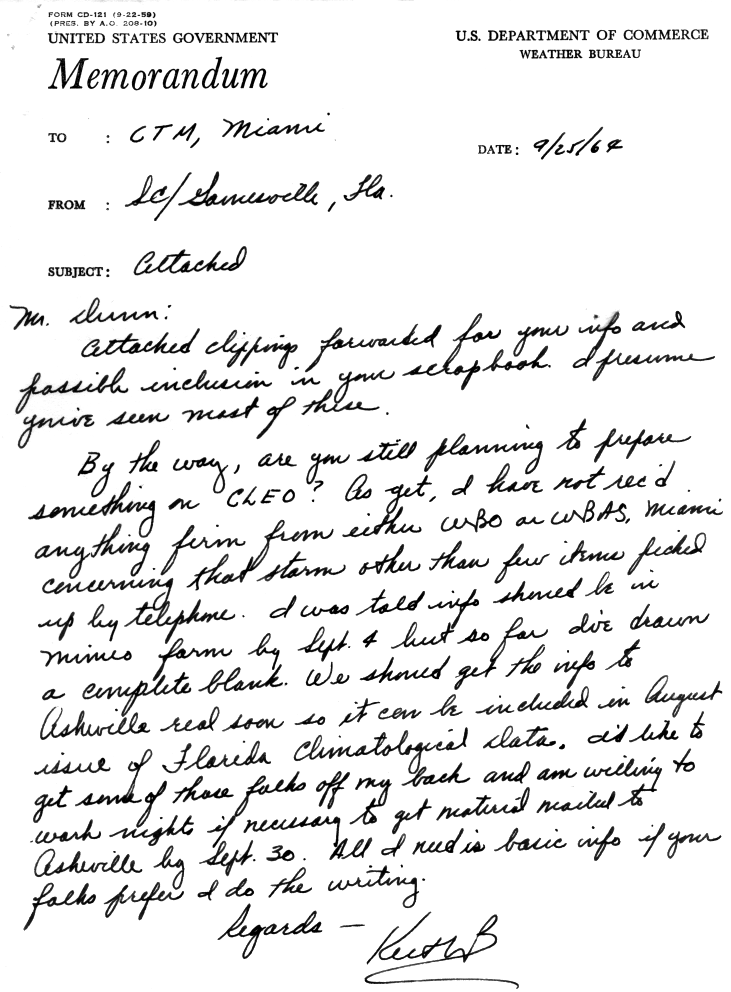 FORM CD-121 (9-22-59)
(PRES. BY A.O. 208-10)
UNITED STATES GOVERNMENT
Memorandum
U.S. DEPARTMENT OF COMMERCE
WEATHER BUREAU
TO : CTM, Miami
DATE: 9/25/64
FROM : SC/Gainesville, Fla.
SUBJECT: Attached
Mr. Dunn:
Attached clippings forwarded for your info and
possible inclusion in your scrapbook. I presume
you've seen most of these.
By the way, are you still planning to prepare
something on CLEO? As yet, I have not rec'd
anything firm from either WBO or WBAS, Miami
concerning that storm other than few items picked
up by telephone. I was told info should be in
mimeo form by Sept. 4 but so far I've drawn
a complete blank. We should get the info to
Asheville real soon so it can be included in August
issue of Florida Climatological Data. I'd like to
get some of those folks off my back and am willing to
work nights if necessary to get material mailed to
Asheville by Sept. 30. All I need is basic info if your
folks prefer I do the writing.
Regards —
Keith B